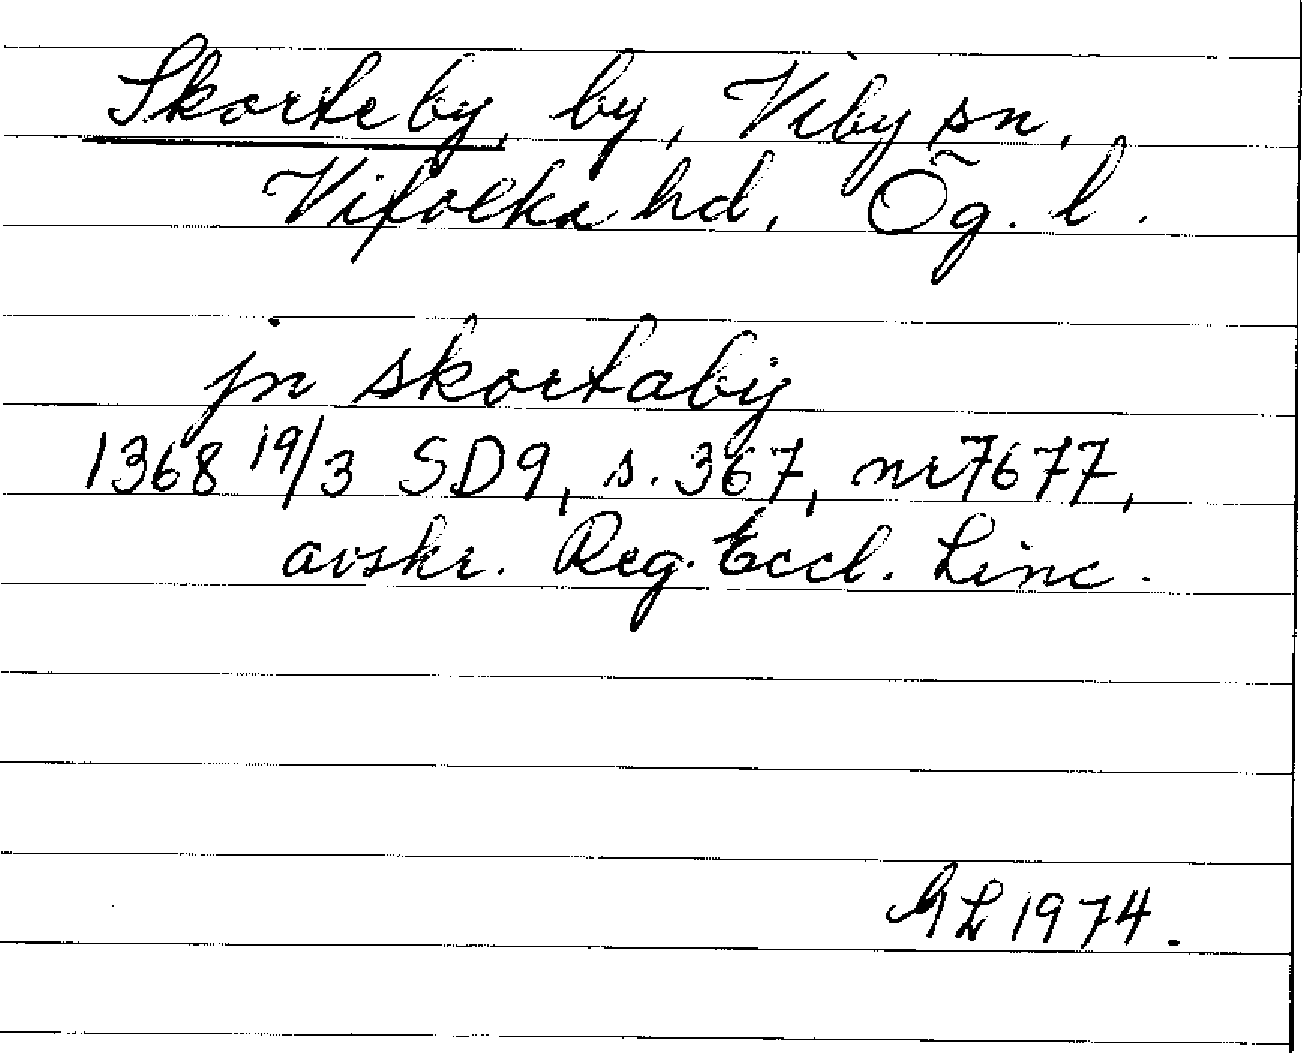 Skorteby, by, Viby sn,
Vifolka hd, Ög. l.
jn skortabÿ
1368 19/3 SD9, s. 367, nr 7677,
avskr. Reg. Eccl. Linc.
GL 1974.